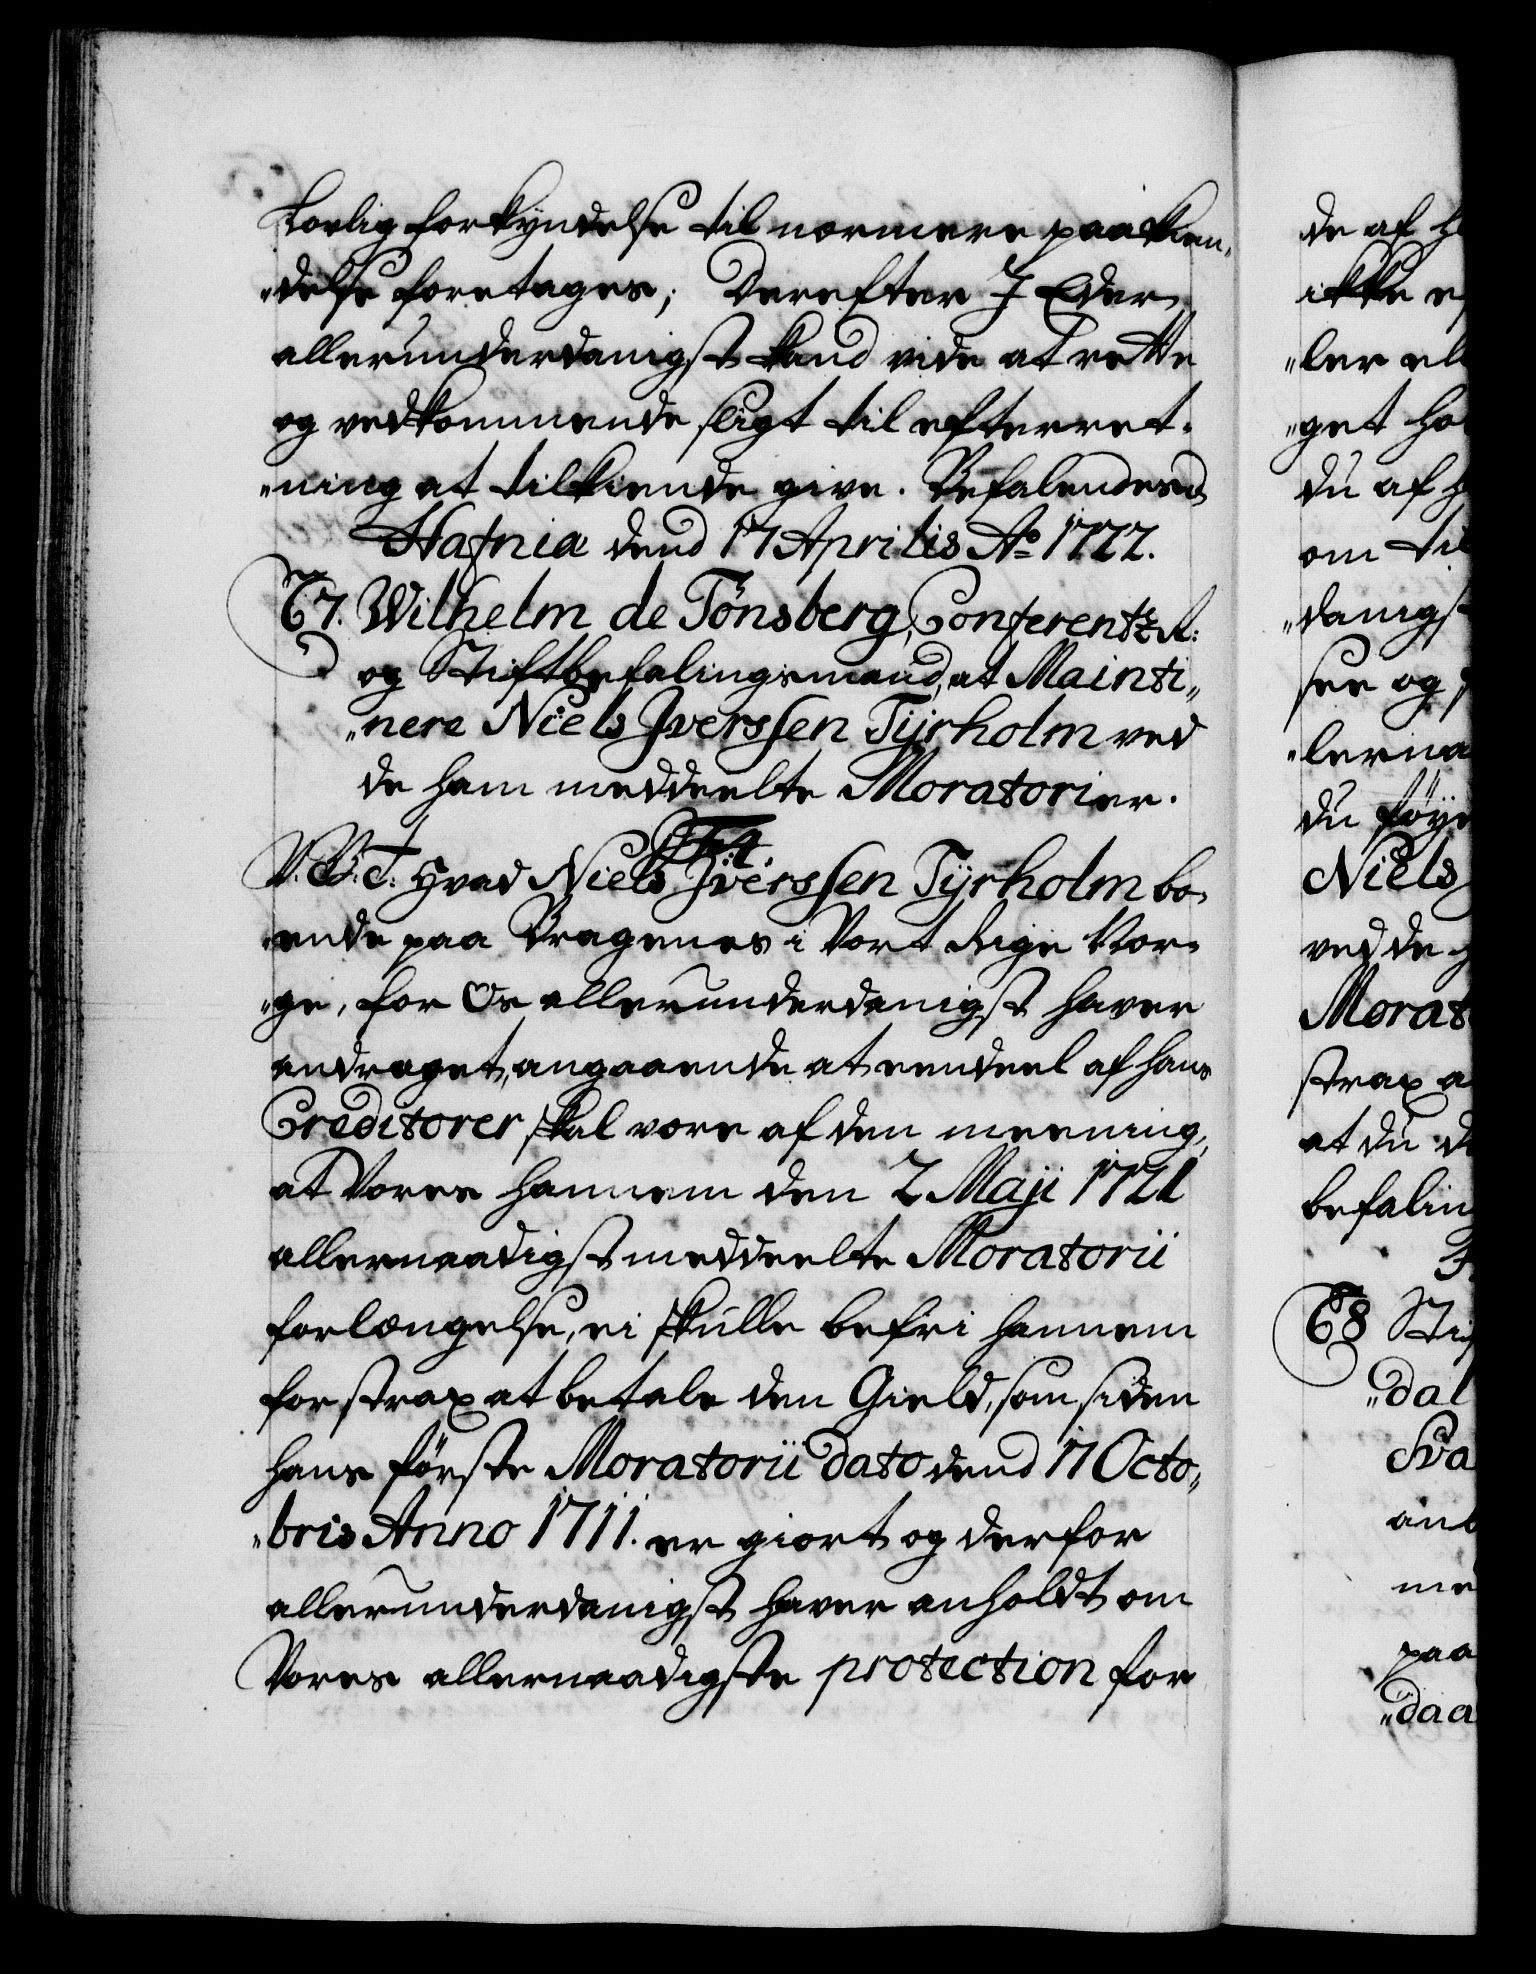 Lovlig forkyndelse til nærmere paakien„
„delse foretages; Derefter I Eder
allerunderdanigst kand vide at rette
og vedkommende sligt til efterret„
„ning at tilkiende give. Befalendes
Hafnia dend 17 Aprilis Ao 1722.
67. Wilhelm de Tönsberg, Conferentz R:
og Stiftbefalingsmand, at Mainti„
„nere Niels Iverssen Tÿrholm ved
de ham meddeelte Moratorier.
F:4.
V. G. T: Hvad Niels Iverssen Tÿrholm bo„
„ende paa Bragenes i Vort Rige Nor„
„ge, for Os allerunderdanigst haver
andraget, angaaende at eendeel af hans
Creditorer skal være af den meening,
at Vores hannem den 2 Maji 1721
allernaadigst meddeelte Moratorii
forlængelse, ei skulle befri hannem
for strax at betale den Gield, som siden
hans förste Moratorii dato dend 17 Octo„
„bris Anno 1711. er giort og derfor
allerunderdanigst haver anholdt om
Vores allernaadigste protection for
de af
ikke
„ler
„get
du af
om
„danigst
see og
„lerna
du föye
Niels
ved de
Morat
strax a
at du
befalin
68 Sti
„dal
Sva
an
me
paa
„daa